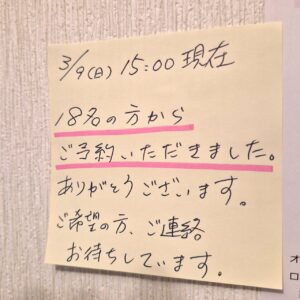 3/9(日) 15:00 現在
18名の方から
ご予約いただきました。
ありがとうございます。
ご希望の方、ご連絡
お待ちしています。
オ
ロ